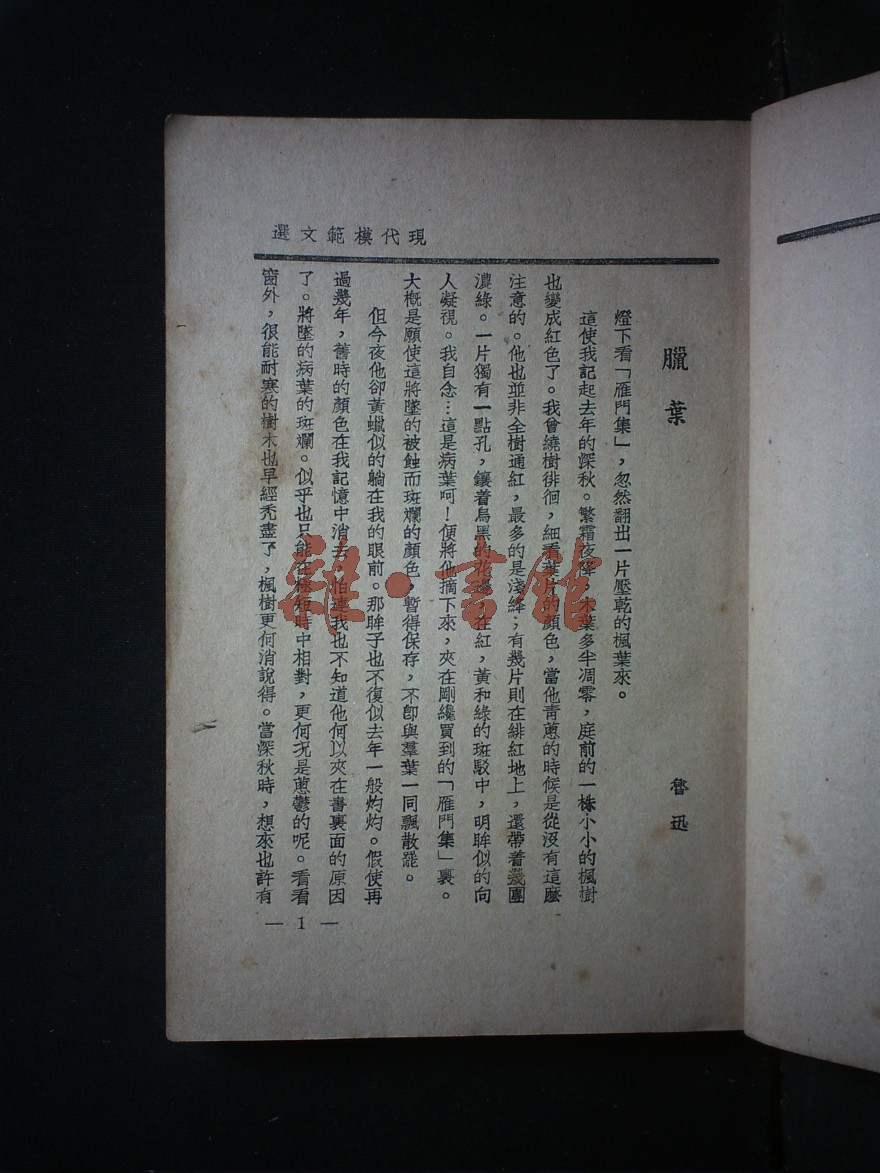 現代模範文選
臘葉
魯迅
燈下看「雁門集」，忽然翻出一片壓乾的楓葉來。
這使我記起去年的深秋。繁霜夜降，木葉多半凋零，庭前的一株小小的楓樹
也變成紅色了。我曾繞樹徘徊，細看葉片的顏色，當他青蔥的時候是從沒有這麼
注意的。他也並非全樹通紅，最多的是淺絳；有幾片則在緋紅地上，還帶着幾團
濃綠。一片獨有一點孔，鑲着烏黑的花邊，在紅，黃和綠的斑駁中，明眸似的向
人凝視。我自念：這是病葉呵！便將他摘下來，夾在剛纔買到的「雁門集」裏。
大概是願使這將墜的被蝕而斑爛的顏色，暫得保存，不卽與羣葉一同飄散罷。
但今夜他卻黃蠟似的躺在我的眼前。那眸子也不復似去年一般灼灼。假使再
過幾年，舊時的顏色在我記憶中消去，怕連我也不知道他何以夾在書裏面的原因
了。將墜的病葉的斑爛。似乎也只能在極短時中相對，更何況是蔥鬱的呢。看看
窗外，很能耐寒的樹木也早經禿盡了，楓樹更何消說得。當深秋時，想來也許有
— 1 —
雜·書館